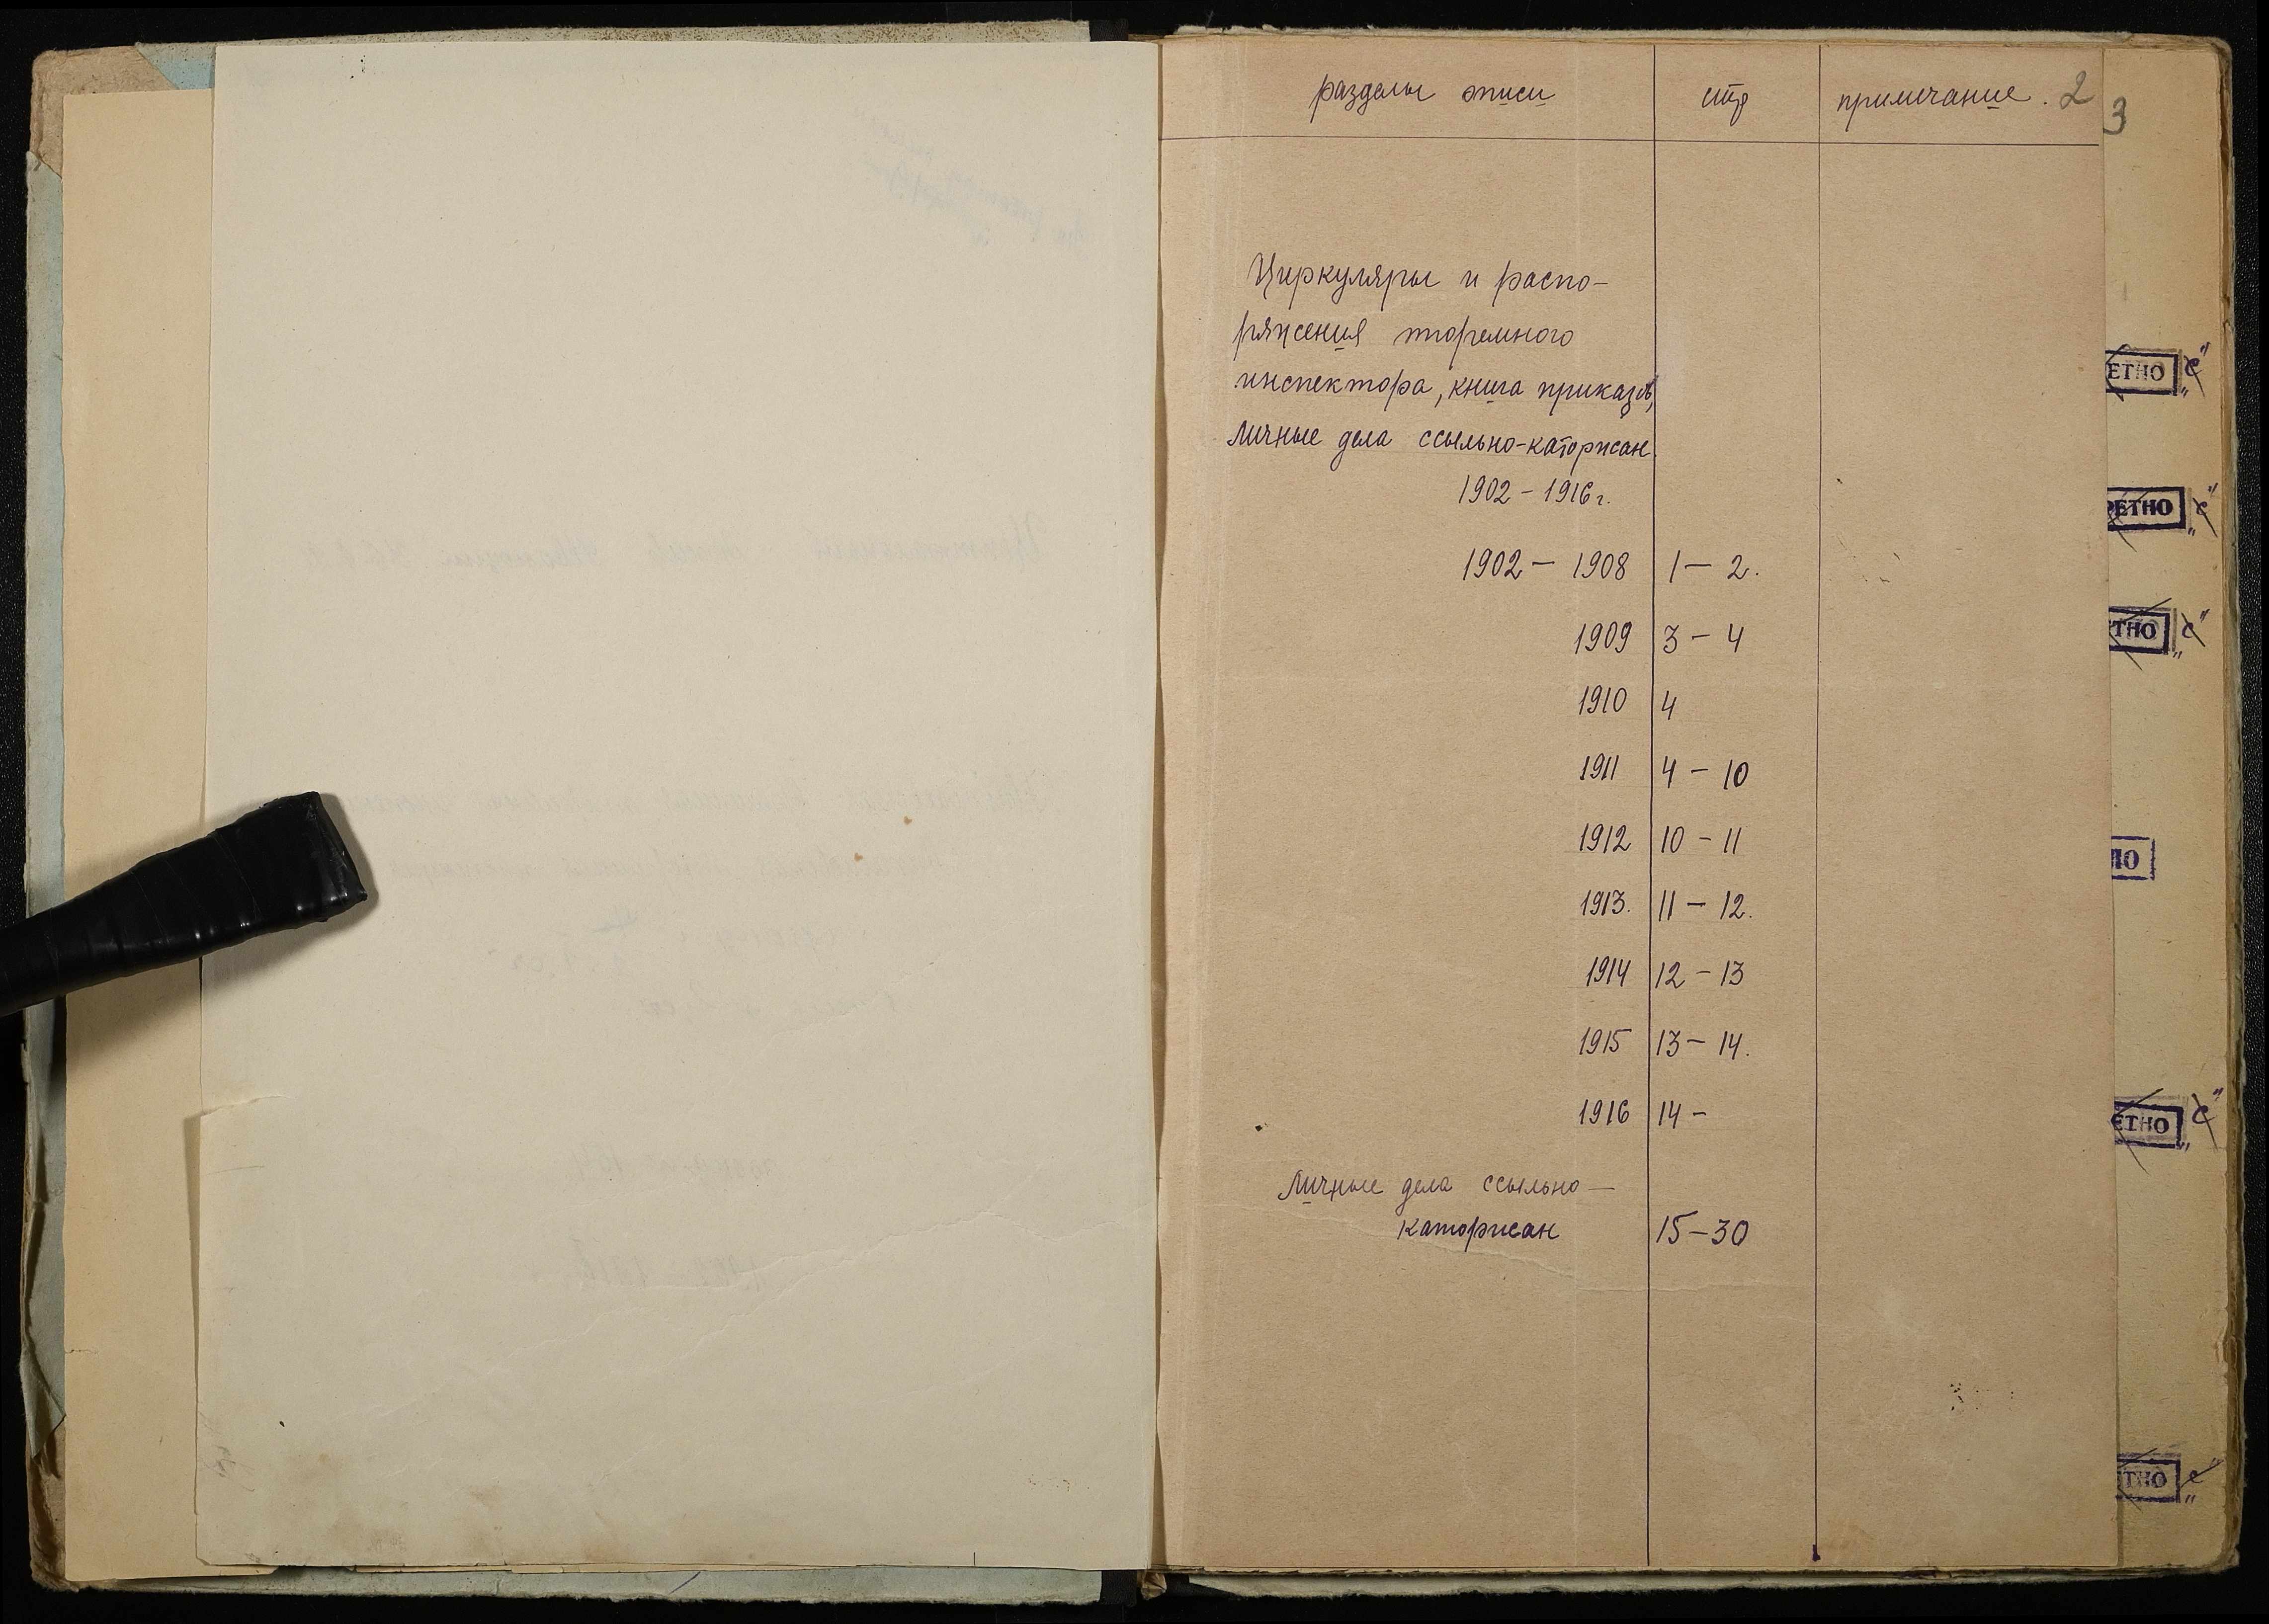 разделы описи стр примечание. 2
3
Циркуляры и распо-
ряжения тюремного
инспектора, книга приказов,
личные дела ссыльно-каторжан.
1902 - 1916 г.
1902 - 1908 1 - 2.
1909 3 - 4
1910 4
1911 4 - 10
1912 10 - 11
1913. 11 - 12.
1914 12 - 13
1915 13 - 14.
1916 14 -
Личные дела ссыльно-
каторжан 15-30
ЕТНО „с“
РЕТНО „с“
ТНО „с“
НО
ЕТНО „с“
ТНО „с“